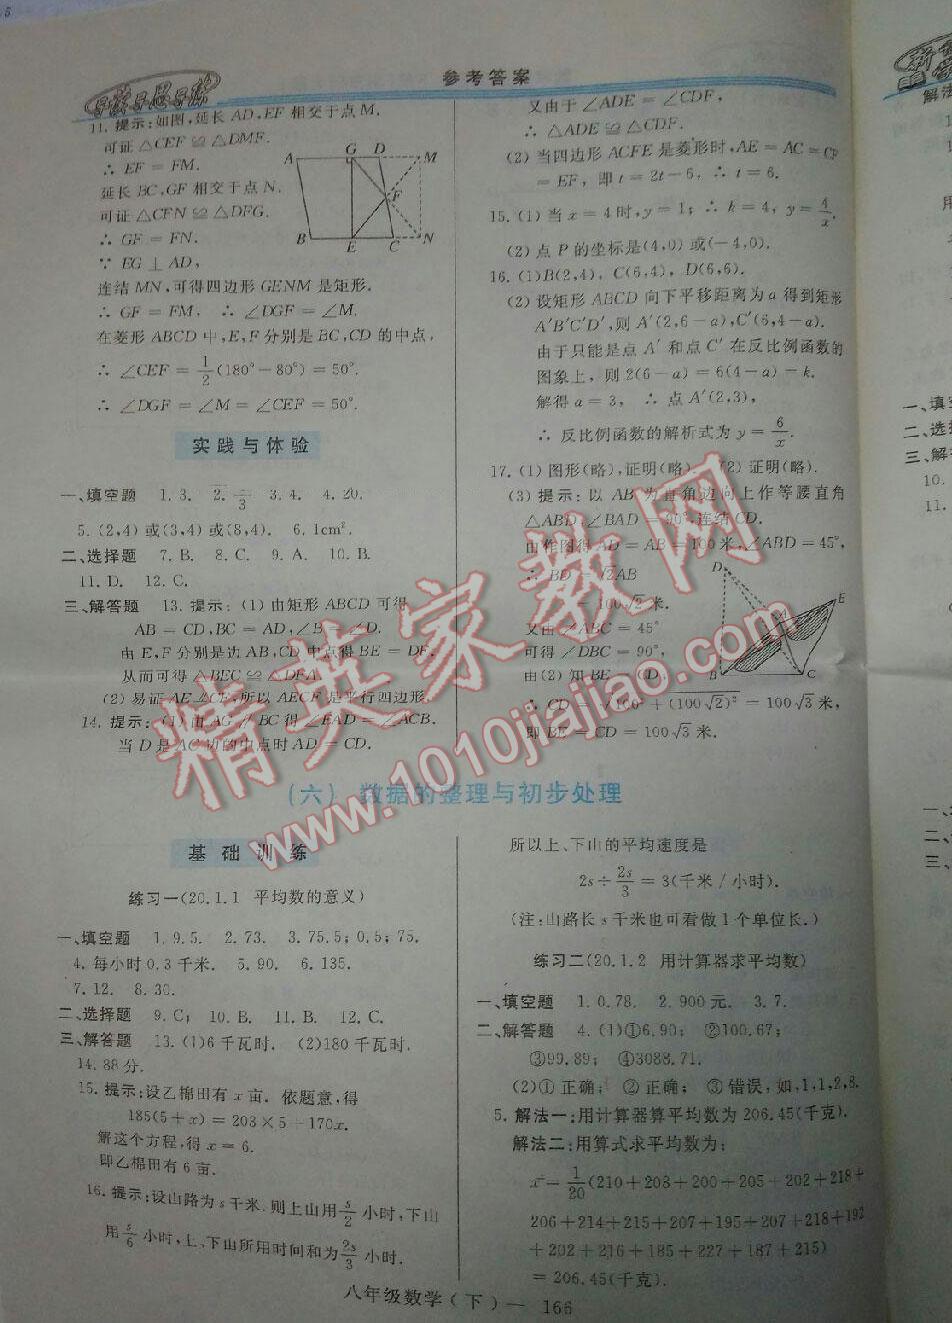 参考答案
导读导思导练
11. 提示:如图,延长 AD,EF 相交于点 M.
可证 △CEF ≌ △DMF.
∴ EF = FM.
延长 BC,GF 相交于点 N.
可证 △CFN ≌ △DFG.
∴ GF = FN.
∵ EG ⊥ AD,
连结 MN,可得四边形 GENM 是矩形.
∴ GF = FM, ∴ ∠DGF = ∠M.
在菱形 ABCD 中,E,F 分别是 BC,CD 的中点,
∴ ∠CEF = 1/2(180° − 80°) = 50°.
∴ ∠DGF = ∠M = ∠CEF = 50°.
A G D M
F
B E C N
实践与体验
一、填空题 1. 3. 2. 3. 4. 4. 20.
5. (2,4) 或(3,4) 或(8,4). 6. 1cm².
二、选择题 7. B. 8. C. 9. A. 10. B.
11. D. 12. C.
三、解答题 13. 提示:(1) 由矩形 ABCD 可得
AB = CD,BC = AD,∠B = ∠D.
由 E,F 分别是边 AB,CD 中点得 BE = DF,
从而可得 △BEC ≌ △DFA.
(2) 易证 AE ∥ CF,所以 AECF 是平行四边形.
14. 提示:(1) 由 AG ∥ BC 得 ∠EAD = ∠ACB.
当 D 是 AC 边的中点时 AD = CD.
又由于 ∠ADE = ∠CDF,
∴ △ADE ≌ △CDF.
(2) 当四边形 ACFE 是菱形时,AE = AC = CF
= EF, 即 t = 2t − 6, ∴ t = 6.
15. (1) 当 x = 4 时,y = 1, ∴ k = 4, y = 4/x.
(2) 点 P 的坐标是(4,0) 或(−4,0).
16. (1)B(2,4), C(6,4), D(6,6).
(2) 设矩形 ABCD 向下平移距离为 a 得到矩形
A′B′C′D′,则 A′(2,6 − a),C′(6,4 − a).
由于只能是点 A′ 和点 C′ 在反比例函数的
图象上,则 2(6 − a) = 6(4 − a).
解得 a = 3, ∴ 点 A′(2,3),
∴ 反比例函数的解析式为 y = 6/x.
17. (1) 图形(略),证明(略). (2) 证明(略).
(3) 提示:以 AB 为直角边向上作等腰直角
△ABD,∠BAD = 90°,连结 CD.
由作图得 AD = AB = 100 米,∠ABD = 45°,
∴ BD = √2AB
= 100√2 米.
又由 ∠ABC = 45°
可得 ∠DBC = 90°,
由(2) 知 BE = CD,
∴ CD = √(100² + (100√2)²) = 100√3 米,
即 BE = CD = 100√3 米.
D
E
A
B C
(六) 数据的整理与初步处理
基础训练
练习一(20.1.1 平均数的意义)
一、填空题 1. 9.5. 2. 73. 3. 75.5;0.5;75.
4. 每小时 0.3 千米. 5. 90. 6. 135.
7. 12. 8. 30.
二、选择题 9. C; 10. B. 11. B. 12. C.
三、解答题 13. (1)6 千瓦时. (2)180 千瓦时.
14. 88 分.
15. 提示:设乙棉田有 x 亩. 依题意,得
185(5 + x) = 203 × 5 + 170x.
解这个方程,得 x = 6.
即乙棉田有 6 亩.
16. 提示:设山路为 s 千米. 则上山用 s/2 小时,下山
用 s/6 小时,上、下山所用时间和为 2s/3 小时.
所以上、下山的平均速度是
2s ÷ 2s/3 = 3(千米 / 小时).
(注:山路长 s 千米也可看做 1 个单位长.)
练习二(20.1.2 用计算器求平均数)
一、填空题 1. 0.78. 2. 900 元. 3. 7.
二、解答题 4. (1)①6.90; ②100.67;
③99.89; ④3088.71.
(2)① 正确; ② 正确; ③ 错误,如,1,1,2,8.
5. 解法一:用计算器算平均数为 206.45(千克).
解法二:用算式求平均数为:
x̄ = 1/20(210 + 208 + 200 + 205 + 202 + 218 +
206 + 214 + 215 + 207 + 195 + 207 + 218 + 192
+ 202 + 216 + 185 + 227 + 187 + 215)
= 206.45(千克).
八年级数学(下) — 166
精英家教网
www.1010jiajiao.com
解法
用
一、
二、选
三、解
10.
11.
一、
二、
三、